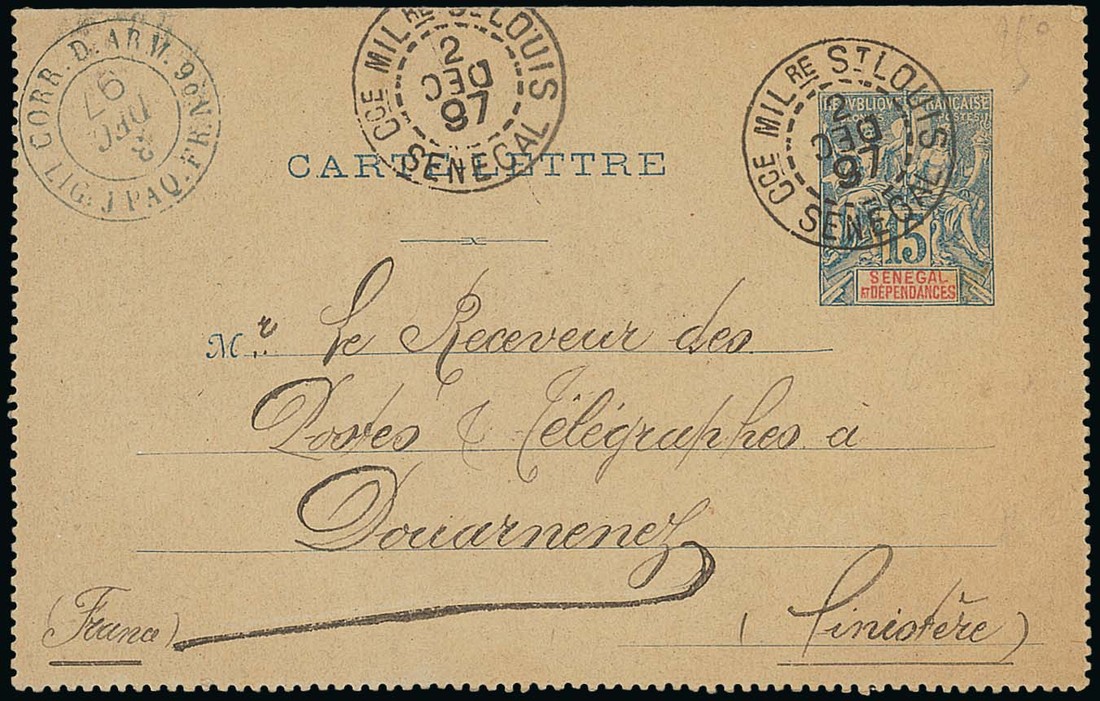 CORR. D. ARM. LIG. J PAQ. FR.
DEC
97
CCE MILRE ST LOUIS
2
DEC
97
SENEGAL
CCE MILRE ST LOUIS
2
DEC
97
SENEGAL
REPUBLIQUE FRANÇAISE
POSTES
15
SENEGAL
ET DÉPENDANCES
CARTE-LETTRE
Mr. Le Receveur des
Postes & Télégraphes a
Douarnenez
(France)
(Finistère)